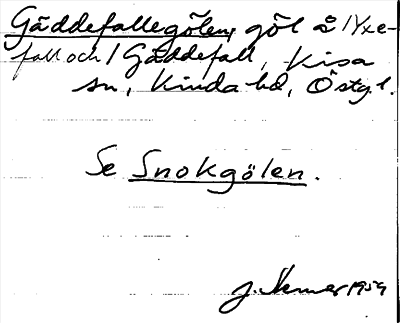 Gäddefallegölen, göl å /Yxe-
fall och/ Gäddefall, Kisa
sn, Kinda hd, Östgl.
Se Snokgölen.
J. 1959